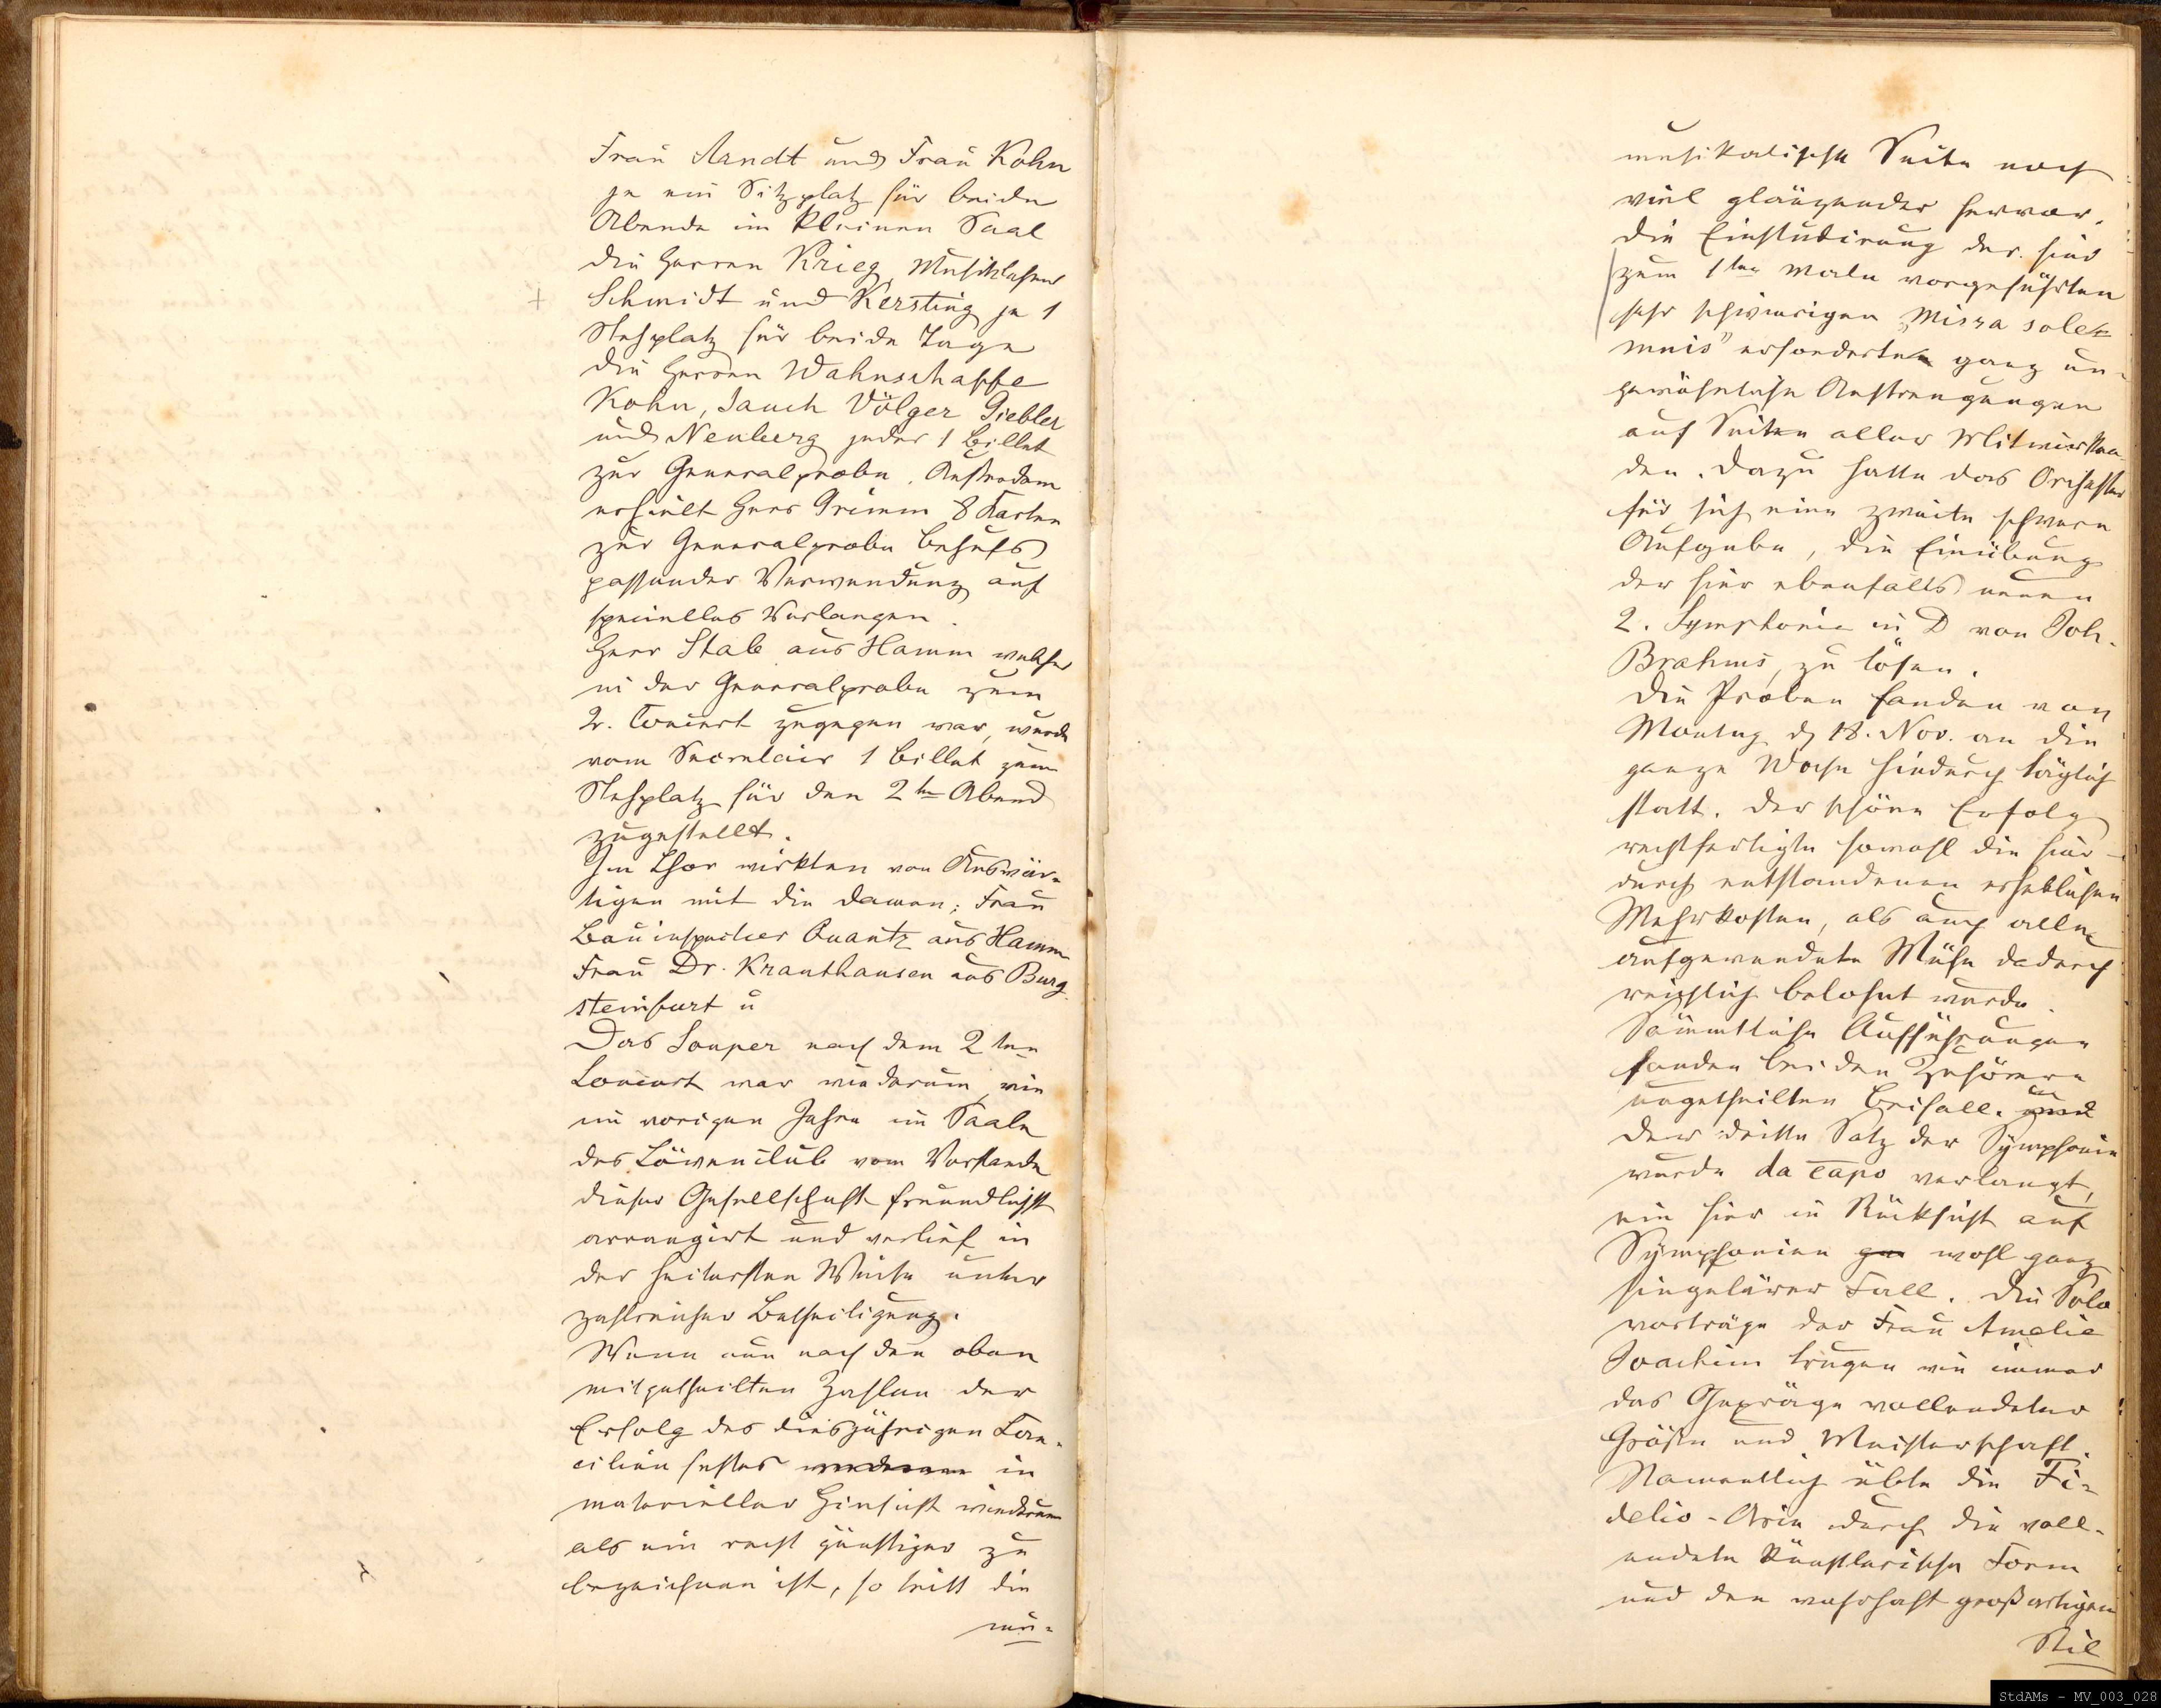 Frau Arndt und Frau Kohn
je ein Sitzplatz für beide
Abende im kleinen Saal
die Herren Krieg, Musiklehrer
Schmidt und Kersting je 1
Stehplatz für beide Tage
die Herren Wahnschaffe
Kohn, Jauch Völger Giebler
und Neuberg jeder 1 Billet
zur Generalprobe. Außerdem
erhielt Herr Grimm 8 Karten
zur Generalprobe behufs
passender Verwendung auf
specielles Verlangen.
Herr Stab aus Hamm welcher
in der Generalprobe zum
2. Concert zugegen war, wurde
vom Secretair 1 Billet zum
Stehplatz für den 2ten Abend
zugestellt.
Im Chor wirkten von Auswär-
tigen mit die Damen; Frau
Bauinspector Quantz aus Hamm
Frau Dr. Krauthausen aus Burg-
steinfurt u
Das Souper nach dem 2ten
Concert war wiederum, wie
im vorigen Jahre im Saale
des Löwenclub vom Vorstande
dieser Gesellschaft freundlichst
arrangirt und verlief in
der heitersten Weise unter
zahlreicher Betheiligung.
Wenn nun nach den oben
mitgetheilten Zahlen der
Erfolg des diesjährigen Cae-
cilien festes in
materieller Hinsicht wiederum
als ein recht günstiger zu
bezeichnen ist, so tritt die
mu-
musikalische Seite noch
viel glänzender hervor.
Die Einstudirung der hier
zum 1ten Male vorgeführten
sehr schwierigen "Missa solem
mnis" erforderte ganz un-
gewöhnliche Anstrengungen
auf Seiten aller Mitwirken-
den. Dazu hatte das Orchester
für sich eine zweite schwere
Aufgabe, die Einübung
der hier ebenfalls neuen
2. Symphonie in D von Joh.
Brahms, zu lösen.
Die Proben fanden von
Montag d 18. Nov. an die
ganze Woche hindurch täglich
statt. Der schöne Erfolg
rechtfertigte sowohl die hier-
durch entstandenen erheblichen
Mehrkosten, als auch alle
aufgewendete Mühe dadurch
reichlich belohnt wurde.
Sämmtliche Aufführungen
fanden bei den Zuhörern
ungetheilten Beifall.
Der dritte Satz der Symphonie
wurde da capo verlangt,
ein hier in Rücksicht auf
Symphonien wohl ganz
singulärer Fall. Die Solo
vorträge der Frau Amalie
Joachim trugen wie immer
das Gepräge vollendeter
Größe und Meisterschaft.
Namentlich übte die Fi-
delio-Arie durch die voll-
endete künstlerische Form
und den wahrhaft großartigen
Stil
StdAMs - MV_003_028